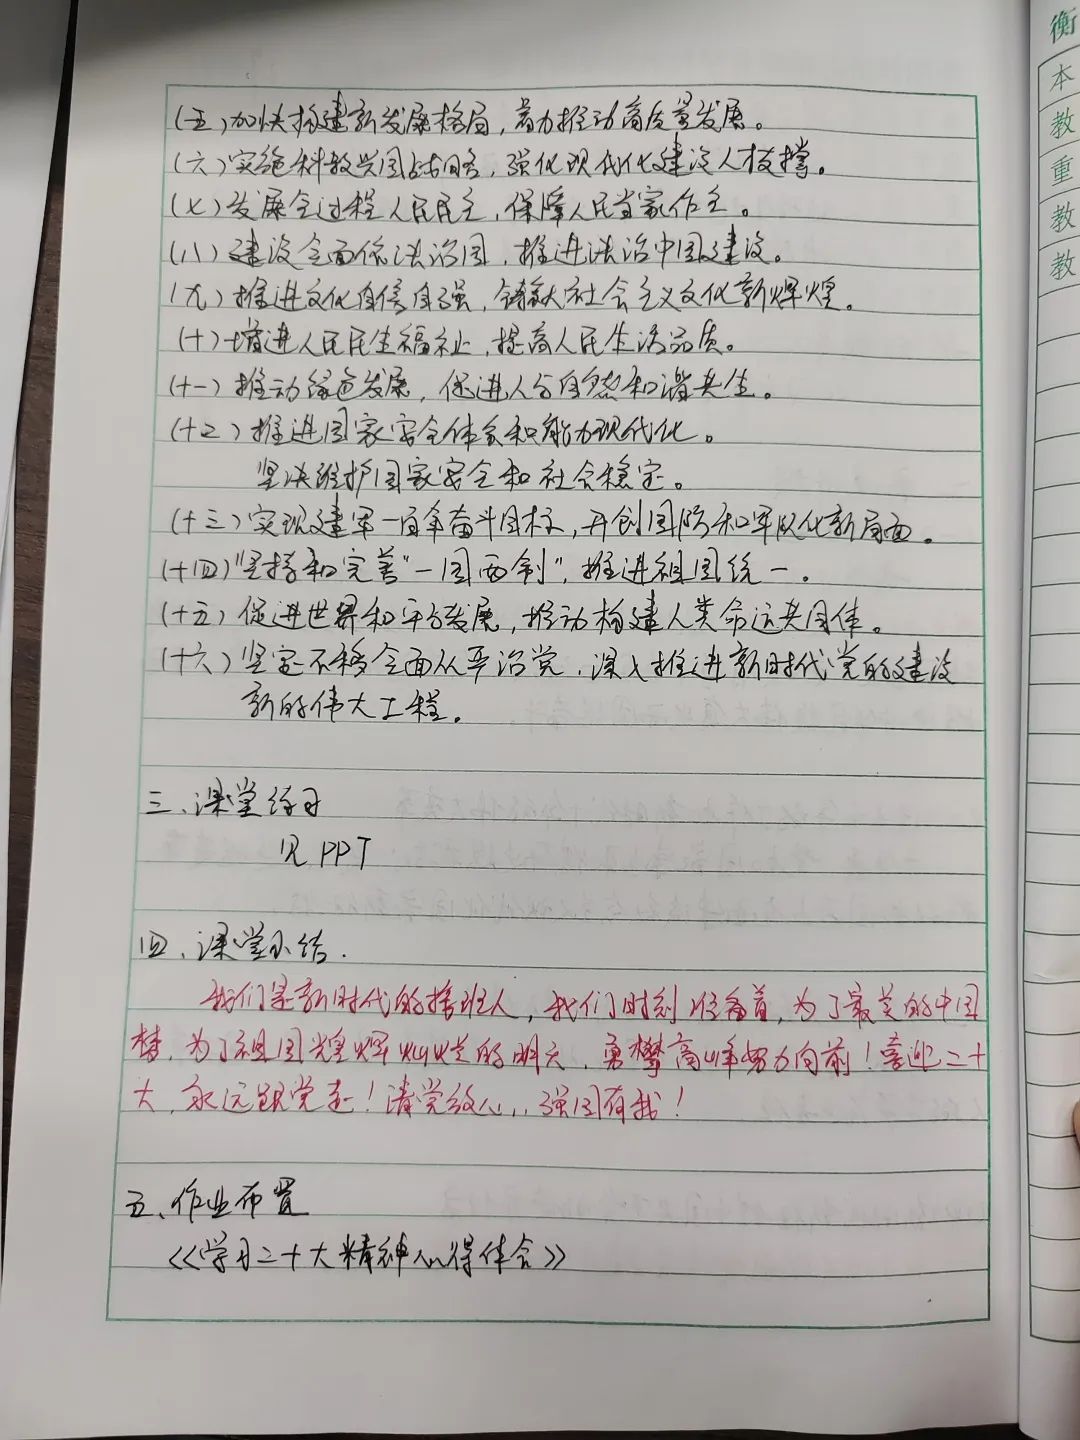 (五)加快构建新发展格局，着力推动高质量发展。
(六)实施科教兴国战略，强化现代化建设人才支撑。
(七)发展全过程人民民主，保障人民当家作主。
(八)建设全面依法治国，推进法治中国建设。
(九)推进文化自信自强，铸就社会主义文化新辉煌。
(十)增进人民民生福祉，提高人民生活品质。
(十一)推动绿色发展，促进人与自然和谐共生。
(十二)推进国家安全体系和能力现代化。
坚决维护国家安全和社会稳定。
(十三)实现建军一百年奋斗目标，开创国防和军队化新局面。
(十四)"坚持和完善"一国两制"，推进祖国统一。
(十五)促进世界和平与发展，推动构建人类命运共同体。
(十六)坚定不移全面从严治党，深入推进新时代党的建设
新的伟大工程。
三、课堂练习
见PPT
四、课堂小结.
我们是新时代的接班人，我们时刻准备着，为了最美的中国
梦，为了祖国煌辉灿烂的明天，勇攀高峰努力向前！喜迎二十
大，永远跟党走！请党放心，强国有我！
五、作业布置
《学习二十大精神心得体会》
衡
本
教
重
教
教